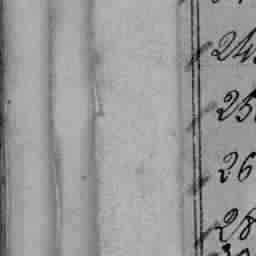 24
25
26
28
30